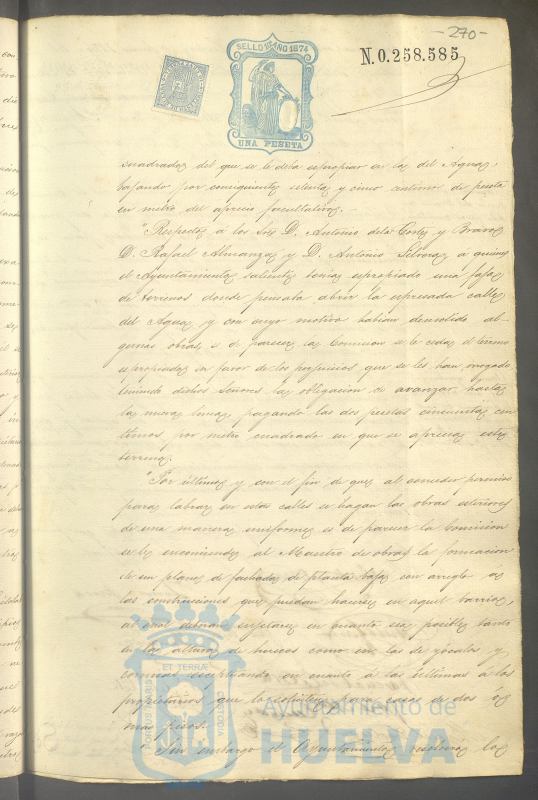 -270-
SELLO 11º AÑO 1874
N.0.258.585
UNA PESETA
cuadrados del que se le debia espropiar en la del Agua,
bajando por consiguiente setenta y cinco centimos de peseta
en metro del aprecio facultativo.
"Respecto á los Sres D. Antonio de la Corte y Bravo
D. Rafael Almanza y D. Antonio á quienes
el Ayuntamiento saliente tenia espropiado una faja
de terreno donde pensaba abrir la espresada calle
del Agua, y con cuyo motivo habian demolido al-
gunas obras, es de parecer la Comision se le ceda el terreno
espropiado en favor de los perjuicios que se les han irrogado
teniendo dichos Señores la obligacion de avanzar hasta
la nueva linea, pagando las dos pesetas cincuenta cen
timos por metro cuadrado en que se aprecia este
terreno.
"Por último y con el fin de que al conceder permiso
para labrar en estas calles se hagan las obras esteriores
de una manera uniforme es de parecer la Comision
se le encomiende al Maestro de obras la formacion
de un plano de fachada de planta baja con arreglo a
las construcciones que puedan hacerse en aquel barrio,
al cual deberan sujetarse en cuanto sea posible tanto
en la altura de huecos como en la de zócalos y
cornisas esceptuando en cuanto á las últimas á los
propietarios que lo soliciten para casas de dos ó
mas pisos.
Sin embargo el Ayuntamiento resolverá lo
ET TERRÆ
PORTUS MARIS
CUSTODIA
Ayuntamiento de
HUELVA